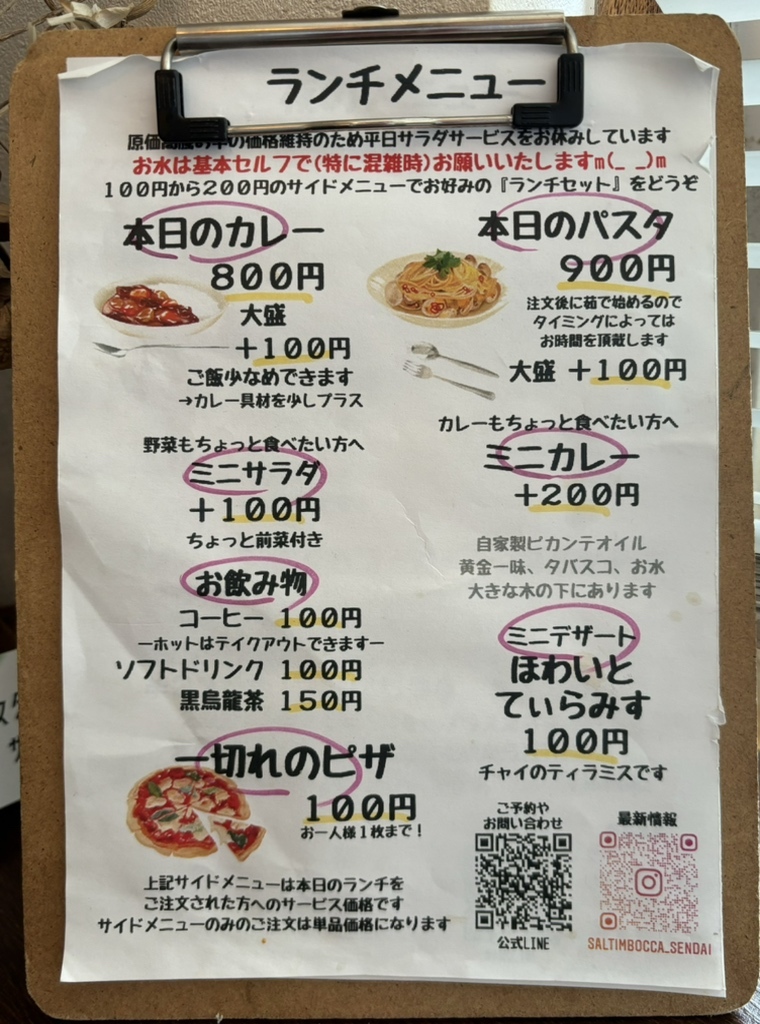 ランチメニュー
原価高騰の中の価格維持のため平日サラダサービスをお休みしています
お水は基本セルフで(特に混雑時)お願いいたしますm(_ _)m
100円から200円のサイドメニューでお好みの『ランチセット』をどうぞ
本日のカレー
800円
大盛
+100円
ご飯少なめできます
→カレー具材を少しプラス
野菜もちょっと食べたい方へ
ミニサラダ
+100円
ちょっと前菜付き
お飲み物
コーヒー 100円
ーホットはテイクアウトできますー
ソフトドリンク 100円
黒烏龍茶 150円
一切れのピザ
100円
お一人様1枚まで!
上記サイドメニューは本日のランチを
ご注文された方へのサービス価格です
サイドメニューのみのご注文は単品価格になります
本日のパスタ
900円
注文後に茹で始めるので
タイミングによっては
お時間を頂戴します
大盛 +100円
カレーもちょっと食べたい方へ
ミニカレー
+200円
自家製ピカンテオイル
黄金一味、タバスコ、お水
大きな木の下にあります
ミニデザート
ほわいと
てぃらみす
100円
チャイのティラミスです
ご予約や
お問い合わせ
公式LINE
最新情報
SALTIMBOCCA_SENDAI